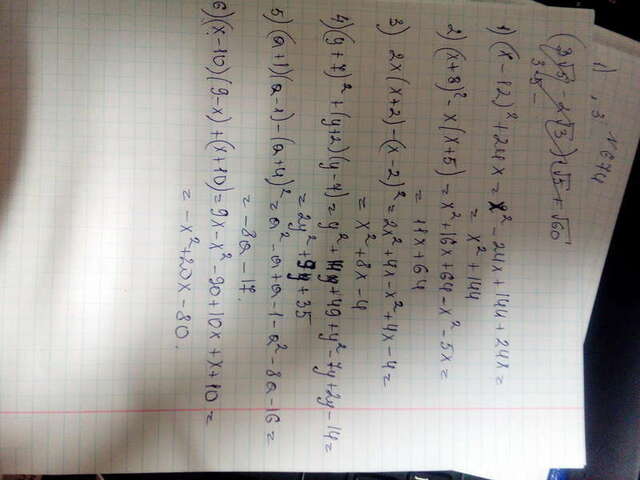 1) , 3. N 674
(2√5 - 2√3)√5 + √60
3√5 -
1) (x-12)² + 24x = x² - 24x + 144 + 24x =
= x² + 144
2) (x+8)² - x(x+5) = x² + 16x + 64 - x² - 5x =
= 11x + 64
3) 2x(x+2) - (x-2)² = 2x² + 4x - x² + 4x - 4 =
= x² + 8x - 4
4) (y+7)² + (y+2)(y-7) = y² + 14y + 49 + y² - 7y + 2y - 14 =
= 2y² + 9y + 35
5) (a+1)(a-1) - (a+4)² = a² - a + a - 1 - a² - 8a - 16 =
= -8a - 17.
6) (x-10)(9-x) + (x+10) = 9x - x² - 90 + 10x + x + 10 =
= -x² + 20x - 80.